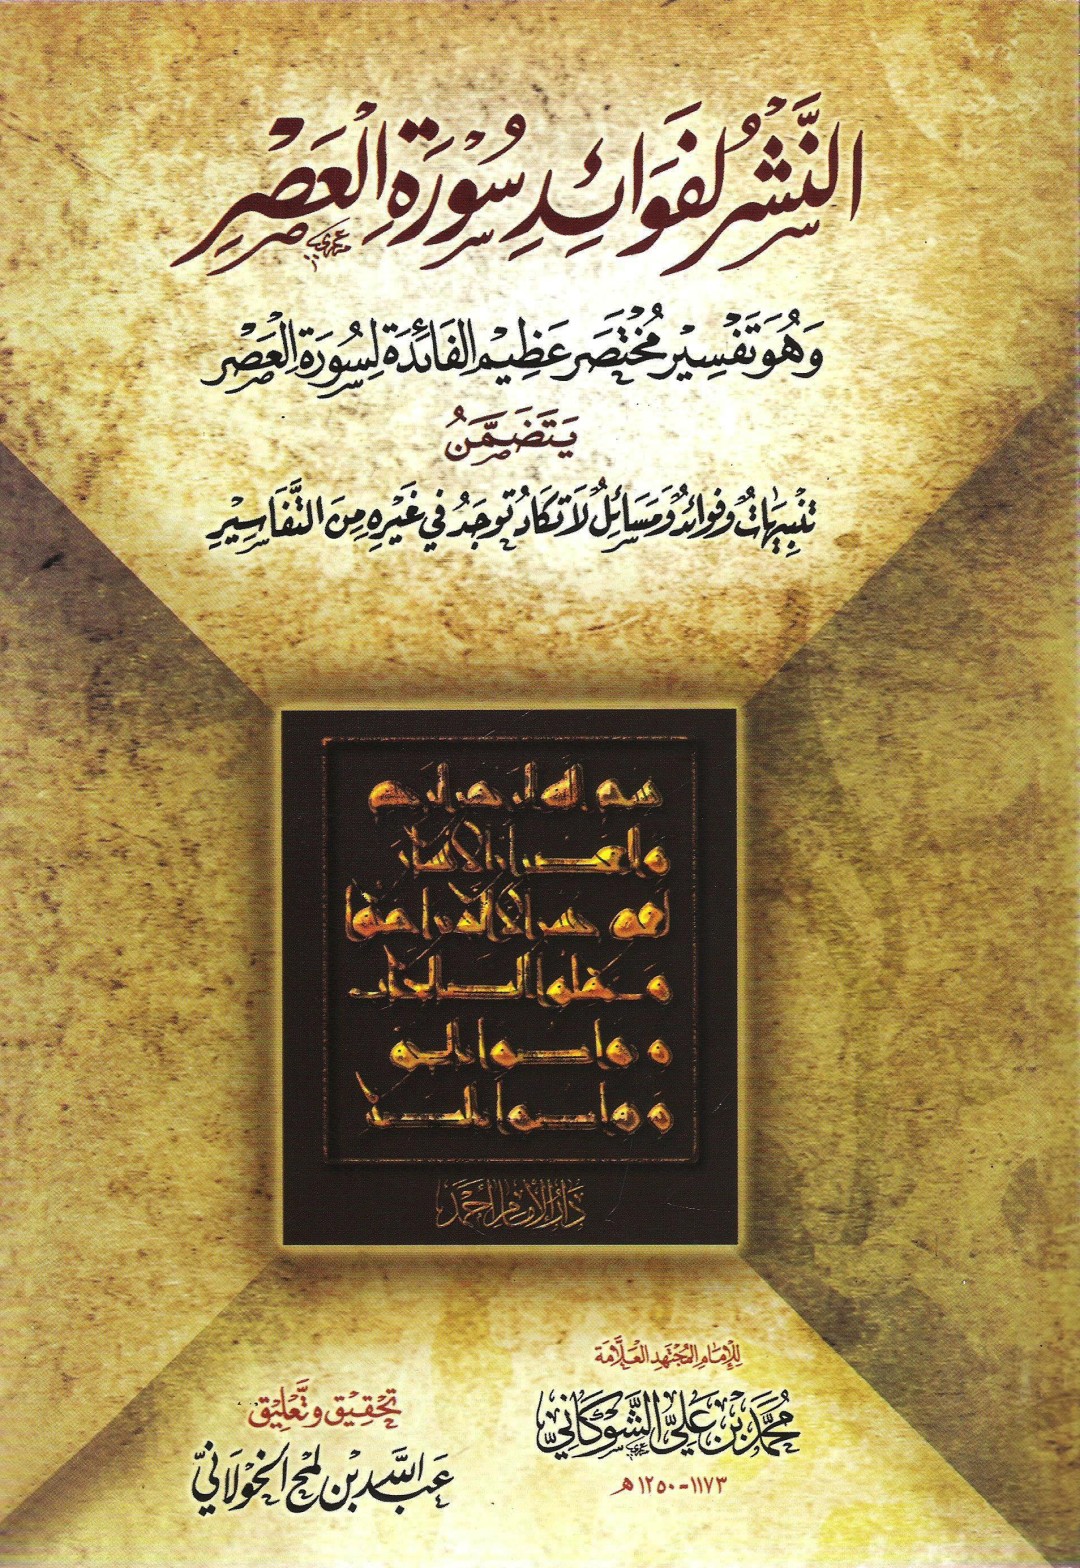 النَّشْرُ لِفَوَائِدِ سُوْرَةِ الْعَصْرِ
وَهُوَ تَفْسِيْرٌ مُخْتَصَرٌ عَظِيْمُ الفَائِدَةِ لِسُورَةِ الْعَصْرِ
يَتَضَمَّنُ
تَنْبِيْهَاتٌ وفوائدُ وَمَسَائِلُ لَا تكادُ توجَدُ في غَيْرِهِ مِنَ التَّفَاسِيْرِ
بسم الله الرحمن الرحيم
والعصر إن الإنسان
لفي خسر إلا الذين آمنوا
وعملوا الصالحات
وتواصوا بالحق
وتواصوا بالصبر
دَارُ الإِمَامِ أَحْمَد
لِلإِمَامِ المُجْتَهِدِ العَلَّامَةِ
مُحَمَّد بْنِ عَلِيٍّ الشَّوْكَانِيِّ
١١٧٣-١٢٥٠ هـ
تَحْقِيْق وتَعْلِيْق
عَبْدُ اللَّه بْنُ لمح الخَوْلَانِيِّ